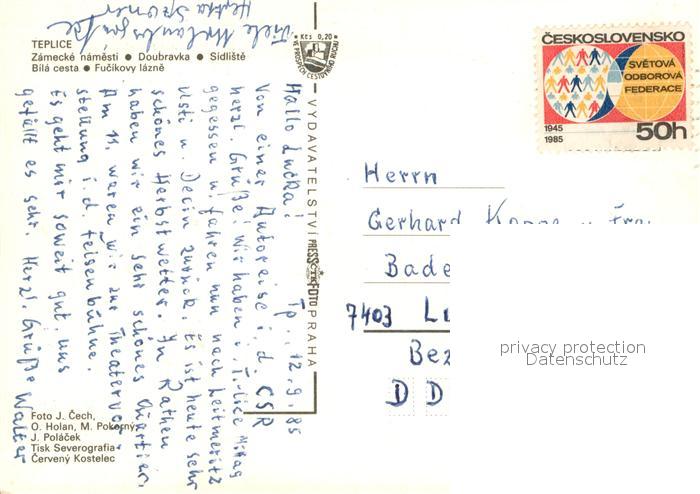 Viele Urlaubsgrüße
TEPLICE
Zámecké náměstí ● Doubravka ● Sídliště
Bílá cesta ● Fučíkovy lázně
Kčs 0,20
VE PROSPĚCH CESTOVNÍHO RUCHU
ČESKOSLOVENSKO
SVĚTOVÁ
ODBOROVÁ
FEDERACE
1945
1985
50h
Tp., 12.9.85
Hallo
Von einer Autoreise i. d. ČSR
herzl. Grüße! Wir haben i. T.-lice Mittag
gegessen u. fahren nun nach Leitmeritz
Usti u. Decin zurück. Es ist heute sehr
schönes Herbstwetter. In Rathen
haben wir ein sehr schönes Quartier.
Am 11. waren wir zur Theatervor-
stellung i. d. Felsenbühne.
Es geht mir soweit gut, uns
gefällt es sehr. Herzl. Grüße Walter
VYDAVATELSTVÍ PRESSFOTO PRAHA
Herrn
Gerhard
Bade
7403
Bez
DD
privacy protection
Datenschutz
Foto J. Čech,
O. Holan, M. Pokorný,
J. Poláček
Tisk Severografia
Červený Kostelec